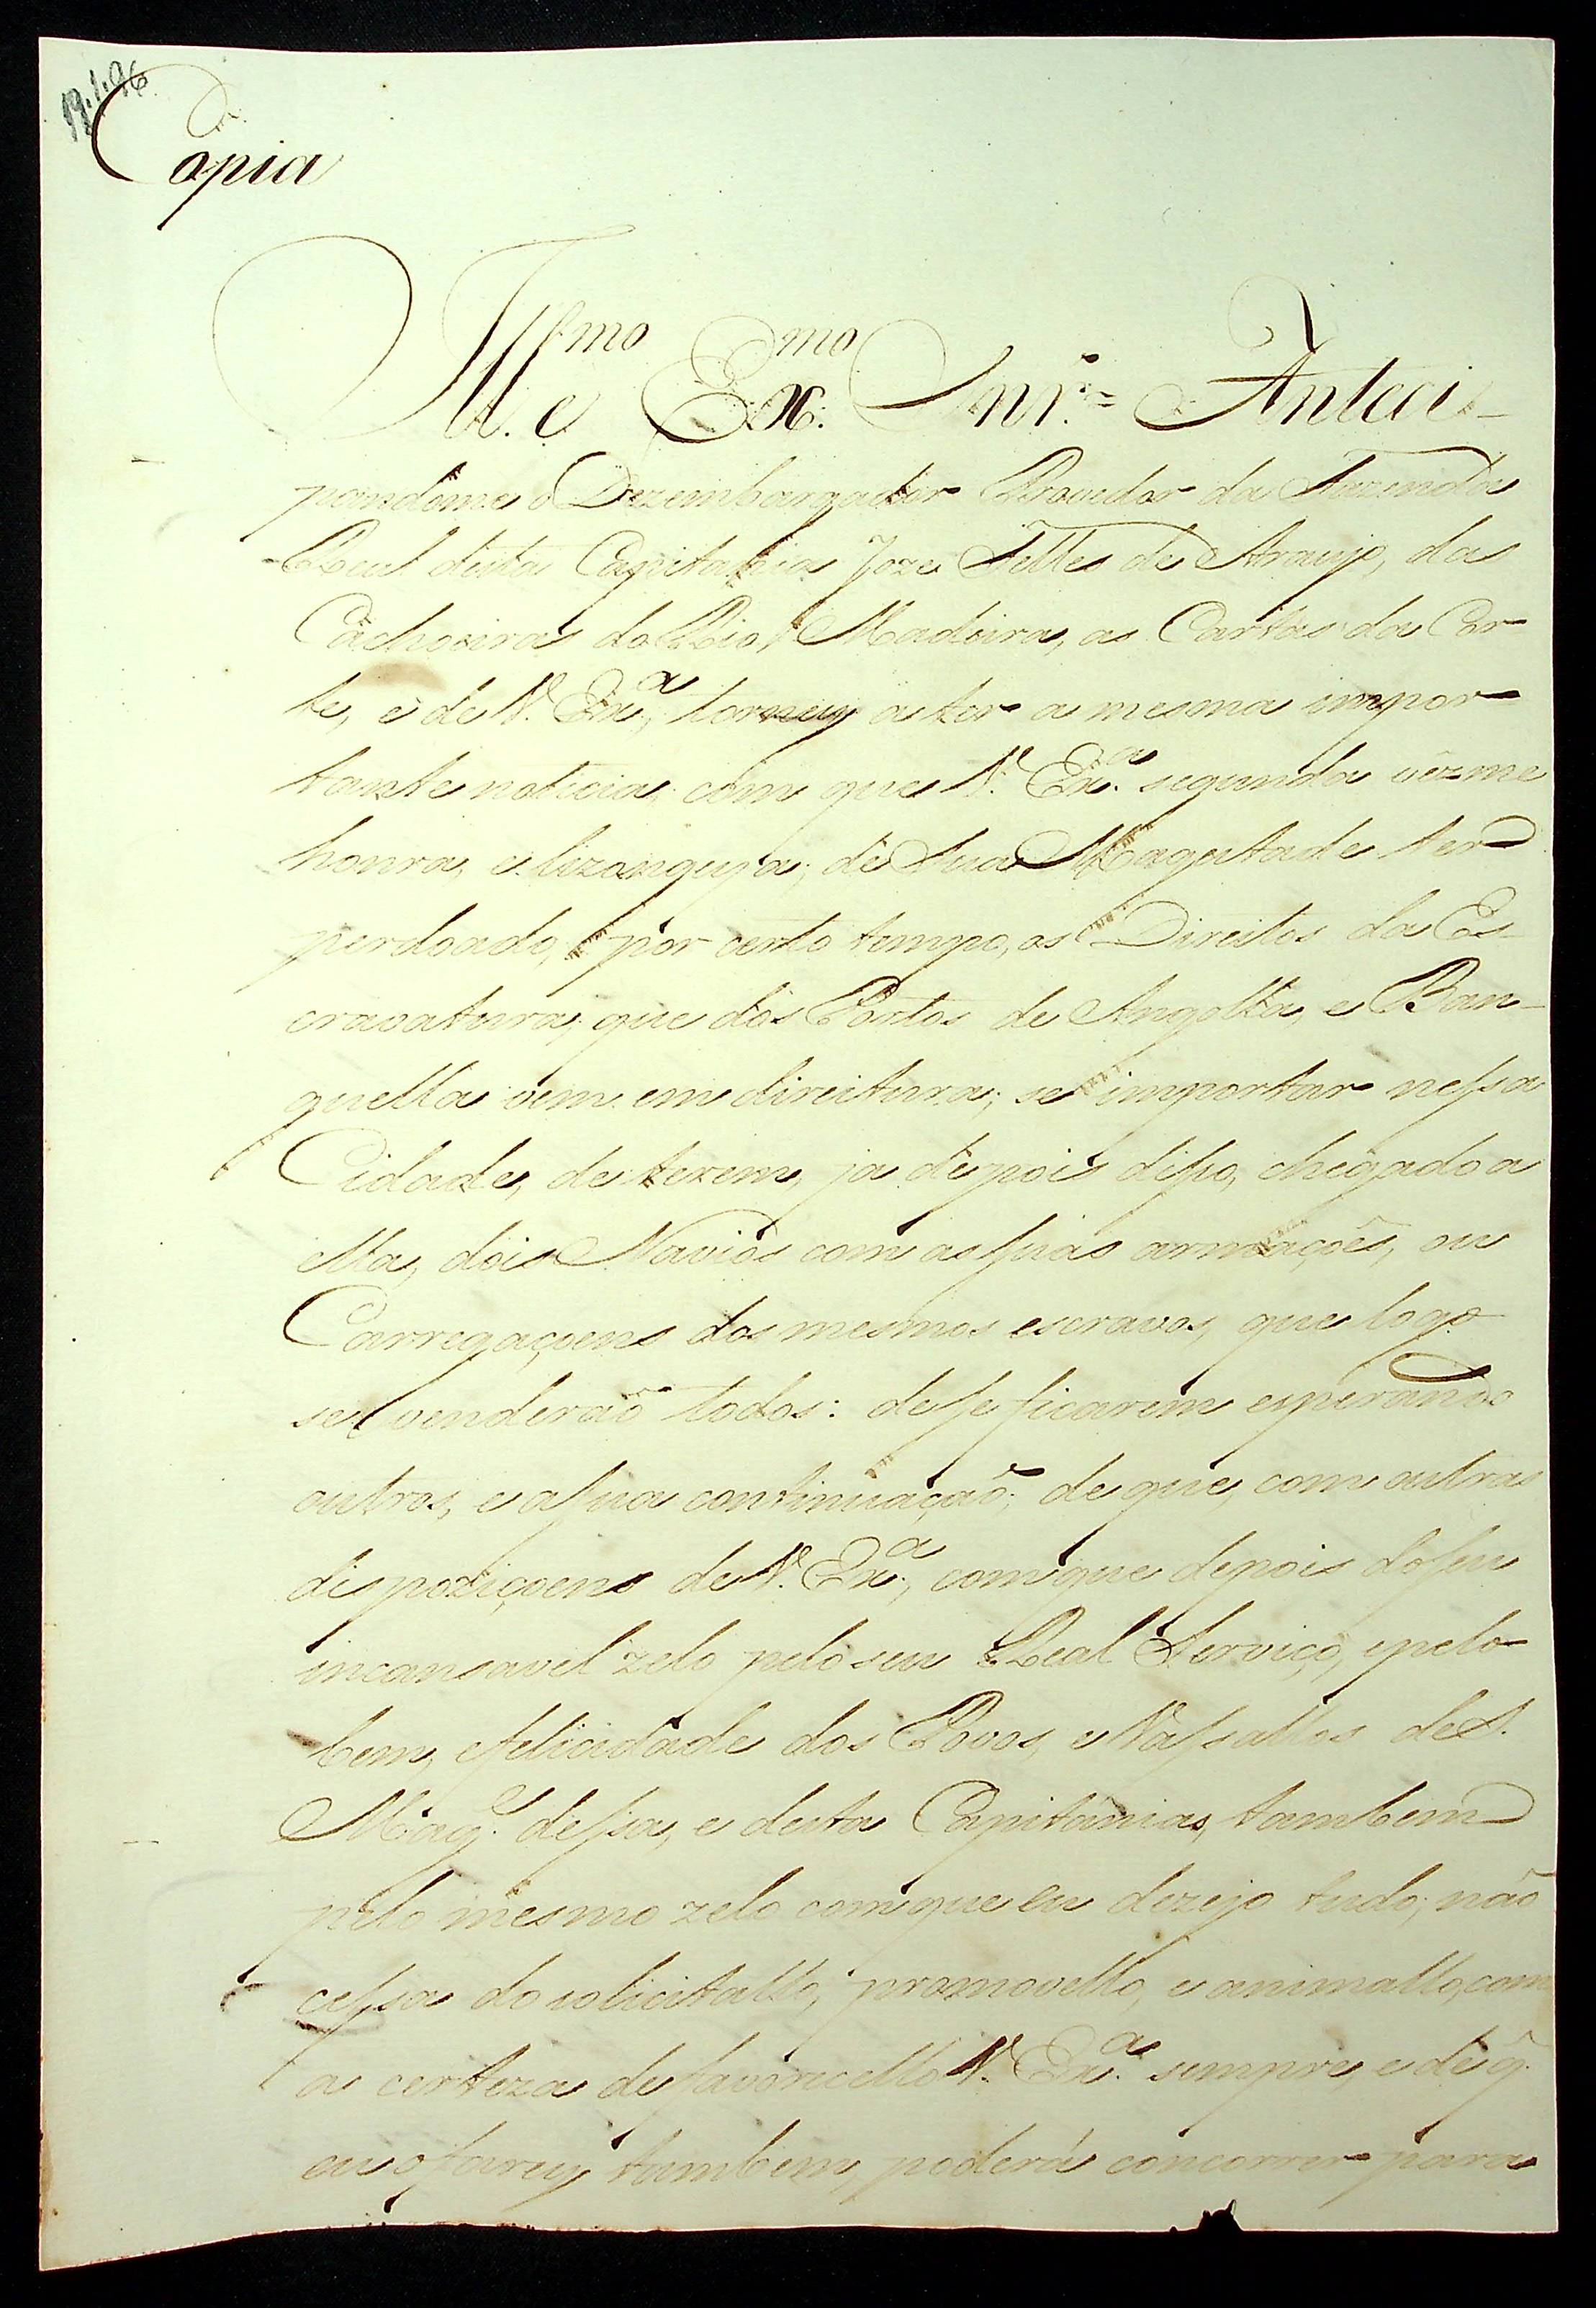 Copia
Ill.mo e Ex.mo Snr.= Anteci-
pandome o Dezembargador Provedor da Fazenda
Real desta Capitania Joze Telles de Araujo, das
Cachoeiras do Rio Madeira, as Cartas da Cor-
te, e de V. Ex.a, torney a ter a mesma impor-
tante noticia, com que V. Ex.a segunda vez me
honra, e lizongeya, de Sua Magestade ter
perdoado, por certo tempo, os Direitos da Es-
cravatura, que dos Portos de Angolla, e Ban-
guella vem em direitura, se importar nessa
Cidade, de terem, ja depois disso, chegado a
ella, dois Navios com as suas armaçoẽs, ou
Carregaçoens dos mesmos escravos, que logo
se venderaõ todos: de se ficarem esperando
outros, e a sua continuaçaõ, de que, com outras
dispoziçoens de V. Ex.a, com que depois do seu
incansavel zelo pelo seu Real Serviço, e pelo
bem, e felicidade dos Povos, e Vassallos de S.
Mag.e dessa, e desta Capitânias, tambem
pelo mesmo zelo com que eu dezejo tudo, não
cessa do solicitallo, promovello, e animallo, com
a certeza de favorecello V. Ex.a sempre, e de q̃
eu o farey tambem, poderá concorrer para